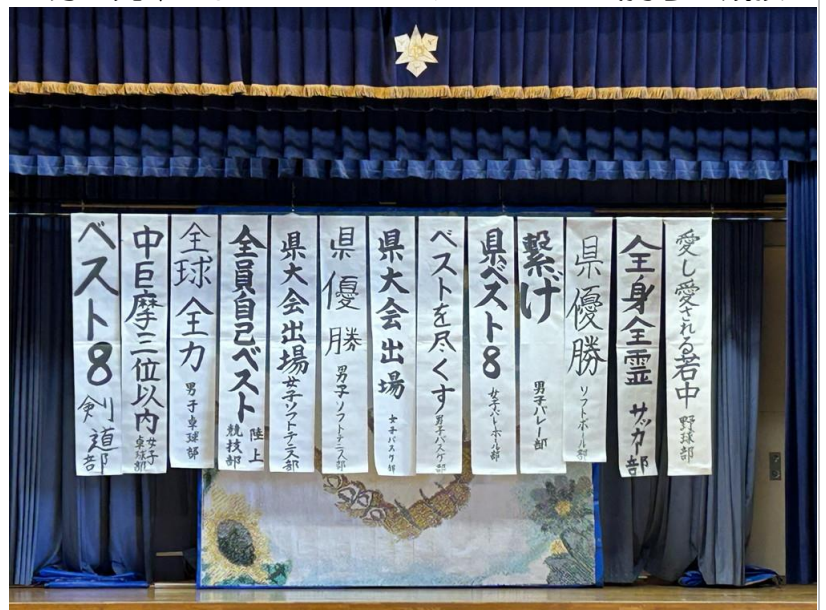 愛し愛される若中 野球部
全身全霊 サッカー部
県優勝 ソフトボール部
繋げ 男子バレー部
県ベスト8 女子バレーボール部
ベストを尽くす 男子バスケ部
県大会出場 女子バスケ部
県優勝 男子ソフトテニス部
県大会出場 女子ソフトテニス部
全員自己ベスト 陸上競技部
全球全力 男子卓球部
中巨摩三位以内 女子卓球部
ベスト8 剣道部